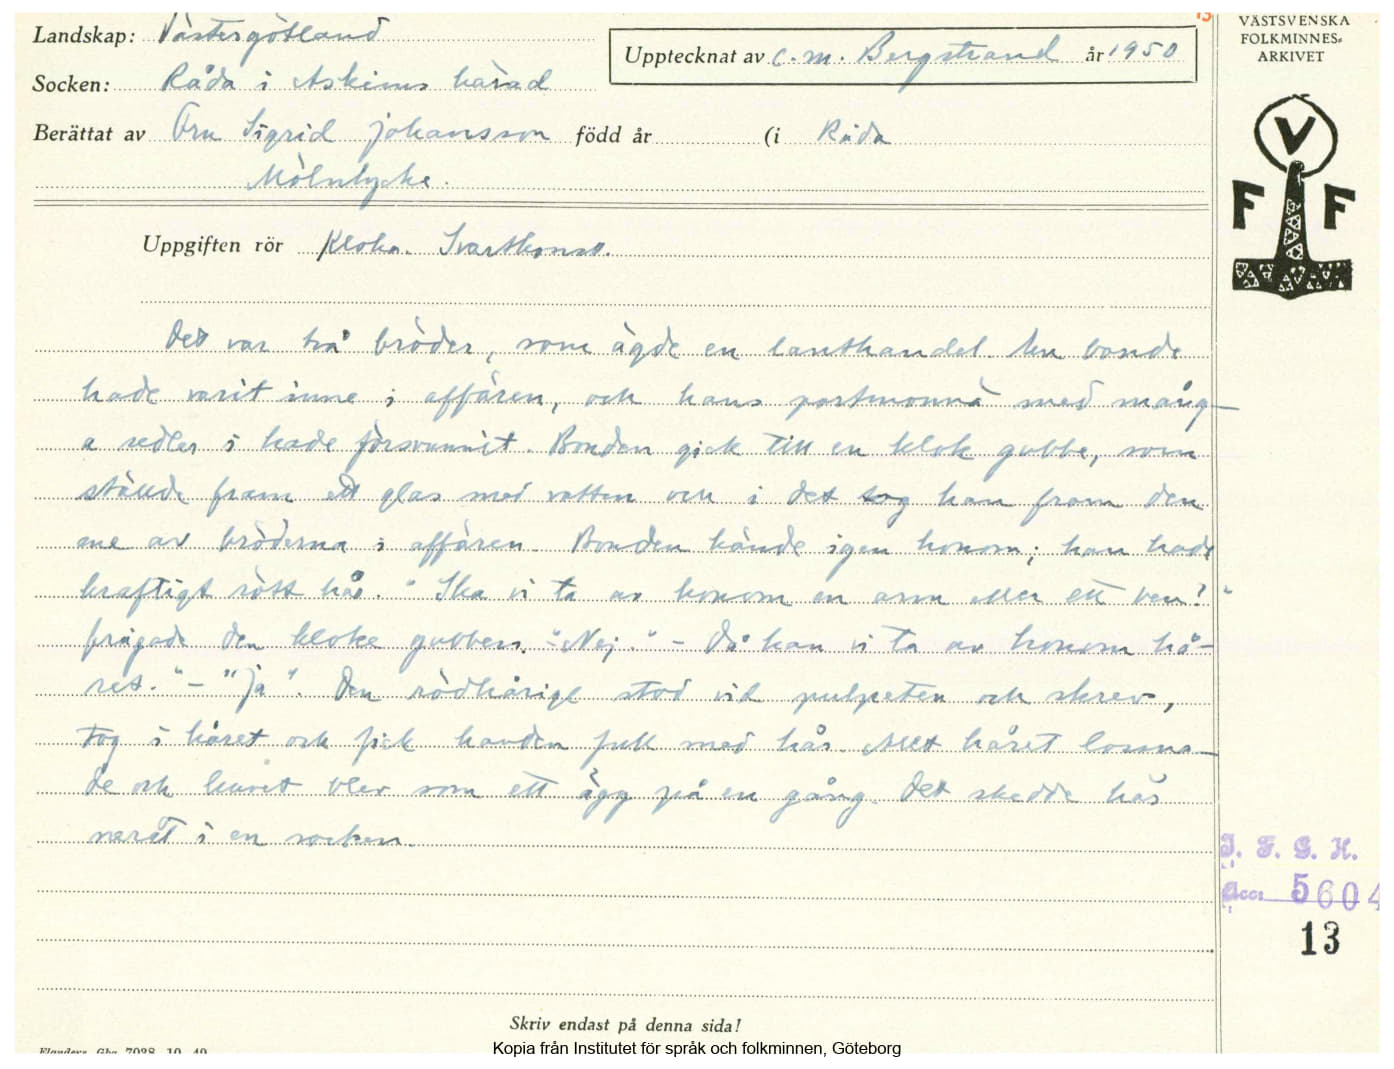 13
Landskap: Västergötland
Upptecknat av C. M. Bergstrand år 1950
VÄSTSVENSKA
FOLKMINNES-
ARKIVET
Socken: Råda i Askims härad
Berättat av Fru Sigrid Johansson född år (i Råda
Mölnlycke.
V
F F
Uppgiften rör Kloka. Svartkonst.
Det var två bröder, som ägde en lanthandel. En bonde
hade varit inne i affären, och hans portmonnä med mång-
a sedler i hade försvunnit. Bonden gick till en klok gubbe, som
ställde fram ett glas med vatten och i det tog han fram den
ene av bröderna i affären. Bonden kände igen honom; han hade
kraftigt rött hår. "Ska vi ta av honom en arm eller ett ben?"
frågade den kloke gubben. "Nej." – Då kan vi ta av honom hå-
ret." – "Ja". Den rödhårige stod vid pulpeten och skrev,
tog i håret och fick handen full med hår. Allt håret lossna-
de och huvet blev som ett ägg på en gång. Det skedde här
neråt i en socken.
I. F. G. H.
Acc: 5604
13
Skriv endast på denna sida!
Flanders Gbg 7038 10 49
Kopia från Institutet för språk och folkminnen, Göteborg